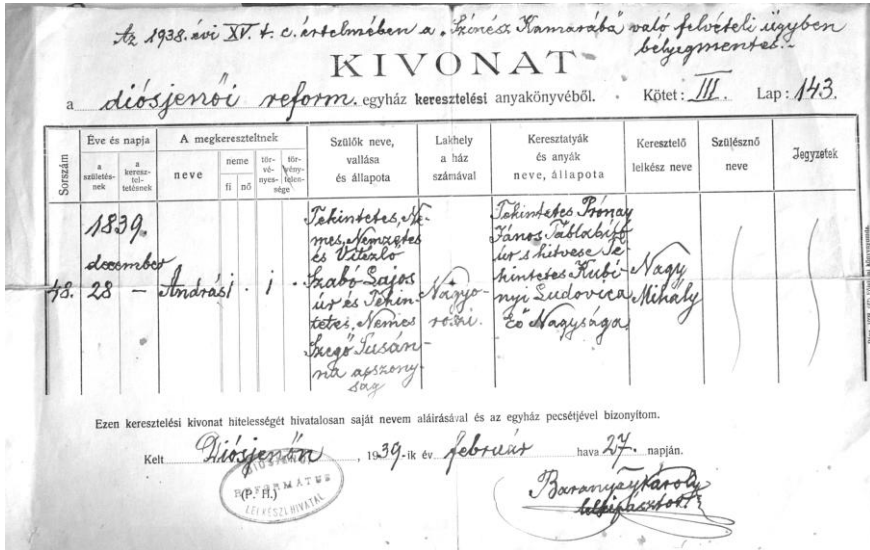 Az 1938. évi XV. t. c. értelmében a „Színész Kamarába" való felvételi ügyben
bélyegmentes.-
KIVONAT
a diósjenői reform. egyház keresztelési anyakönyvéből. Kötet: III. Lap: 143.
Sorszám
Éve és napja
a születésnek
a keresztel-
tetésnek
A megkereszteltnek
neve
neme
fi nő
tör-
vé-
nyes-
tör-
vény-
telen-
sége
Szülők neve,
vallása
és állapota
Lakhely
a ház
számával
Keresztatyák
és anyák
neve, állapota
Keresztelő
lelkész neve
Szülésznő
neve
Jegyzetek
48.
1839.
december
28 —
András
1 .
1 .
Tekintetes, Ne-
mes, Nemzetes
és Vitézlő
Szabó Lajos
úr és Tekin-
tetes, Nemes
Szegő Susán-
na asszony-
ság
Tekintetes Prónay
János Táblabíró
úr s hitvese Te-
kintetes Kubi-
nyi Ludovica
Eő Nagysága
Nagy
Mihály
Ezen keresztelési kivonat hitelességét hivatalosan saját nevem aláírásával és az egyház pecsétjével bizonyítom.
Kelt Diósjenőn, 1939-ik év február hava 27. napján.
(P. H.)
DIÓSJENŐI
REFORMÁTUS
LELKÉSZI HIVATAL
Baranyay Károly
lelkipásztor